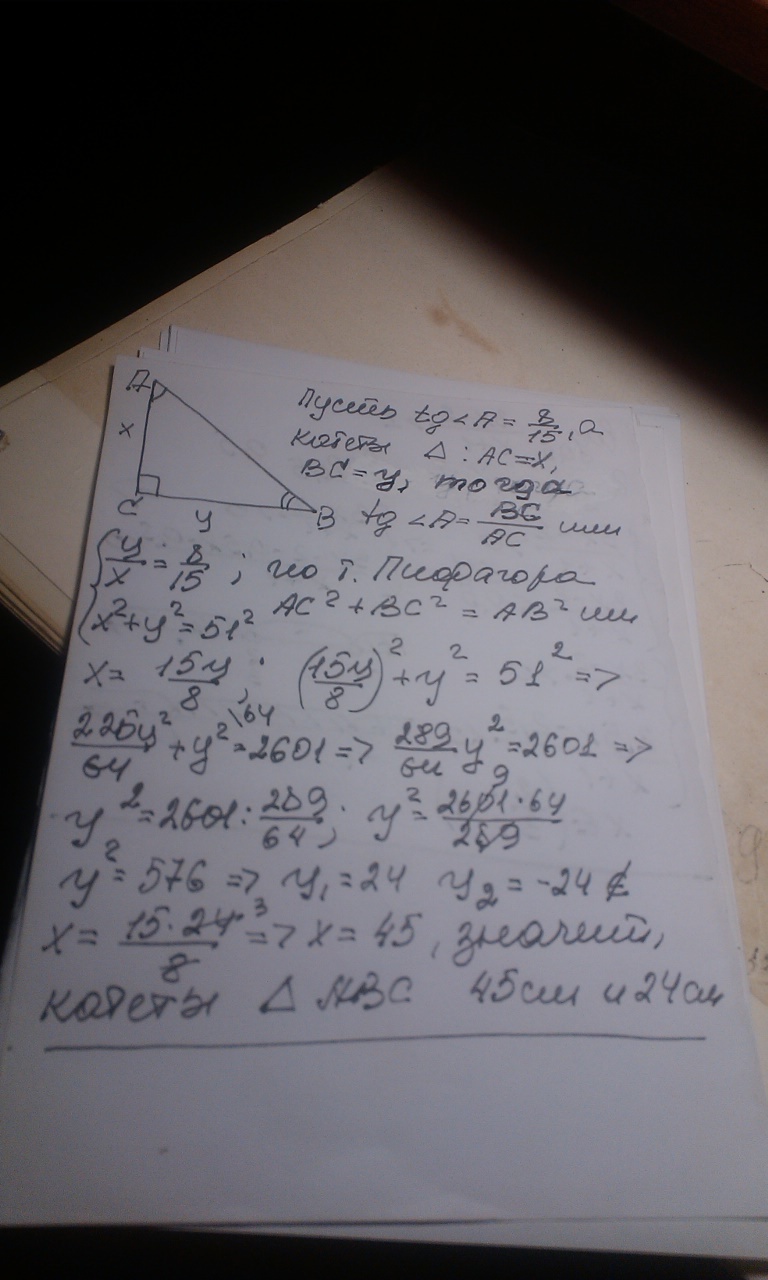 A
Пусть tg∠A = 8/15, а
x
катеты Δ : AC=x,
BC=y, тогда
C
y
B
tg∠A = BC/AC или
{ y/x = 8/15 ; по т. Пифагора
x²+y²=51² AC²+BC² = AB² или
x = 15y/8 ; (15y/8)² + y² = 51² =>
225y²/64 + y² \64 = 2601 => 289/64 y² = 2601 =>
y² = 2601 : 289/64 ; y² = 2601 9 · 64/289
y² = 576 => y₁ = 24 y₂ = -24 ∉
x = 15·24 3/8 => x = 45, значит,
катеты Δ ABC 45см и 24см